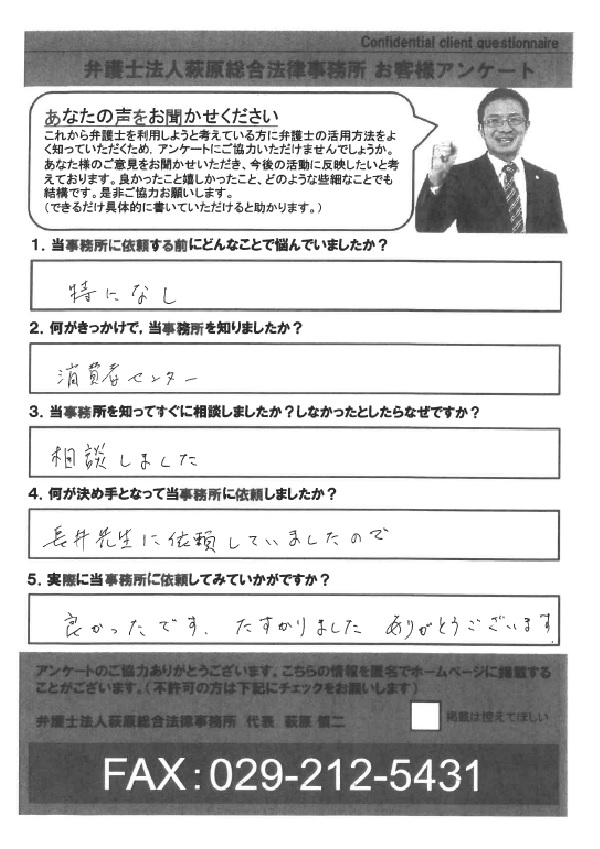 Confidential client questionnaire
弁護士法人萩原総合法律事務所 お客様アンケート
あなたの声をお聞かせください
これから弁護士を利用しようと考えている方に弁護士の活用方法をよ
く知っていただくため，アンケートにご協力いただけませんでしょうか。
あなた様のご意見をお聞かせいただき、今後の活動に反映したいと考
えております。良かったこと嬉しかったこと、どのような些細なことでも
結構です。是非ご協力お願いします。
（できるだけ具体的に書いていただけると助かります。）
1．当事務所に依頼する前にどんなことで悩んでいましたか？
特になし
2．何がきっかけで，当事務所を知りましたか？
消費者センター
3．当事務所を知ってすぐに相談しましたか？しなかったとしたらなぜですか？
相談しました
4．何が決め手となって当事務所に依頼しましたか？
長井先生に依頼していましたので
5．実際に当事務所に依頼してみていかがですか？
良かったです．たすかりました ありがとうございます
アンケートのご協力ありがとうございます。こちらの情報を匿名でホームページに掲載する
ことがございます。（不許可の方は下記にチェックをお願いします）
弁護士法人萩原総合法律事務所 代表 萩原 慎二
掲載は控えてほしい
FAX：029-212-5431